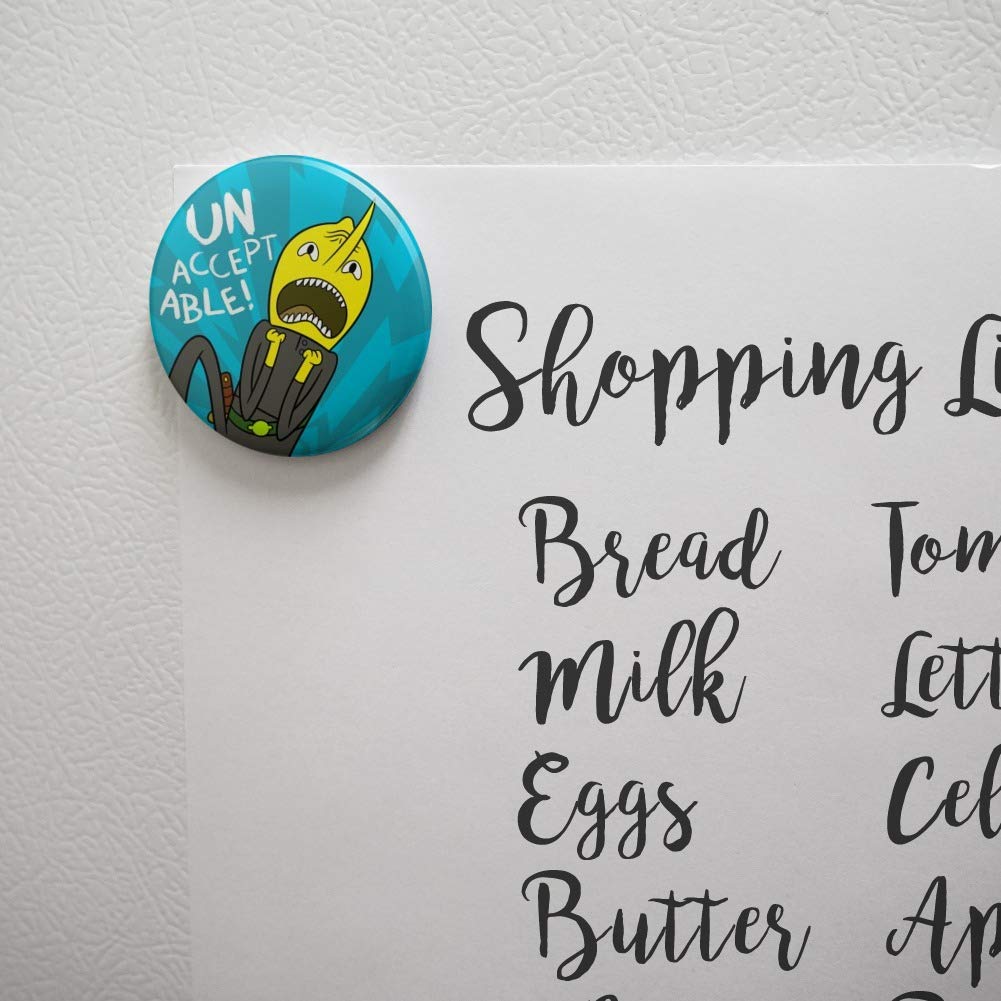 UN
ACCEPT
ABLE!
Shopping Li
Bread Tom
Milk Lett
Eggs Cel
Butter Ap